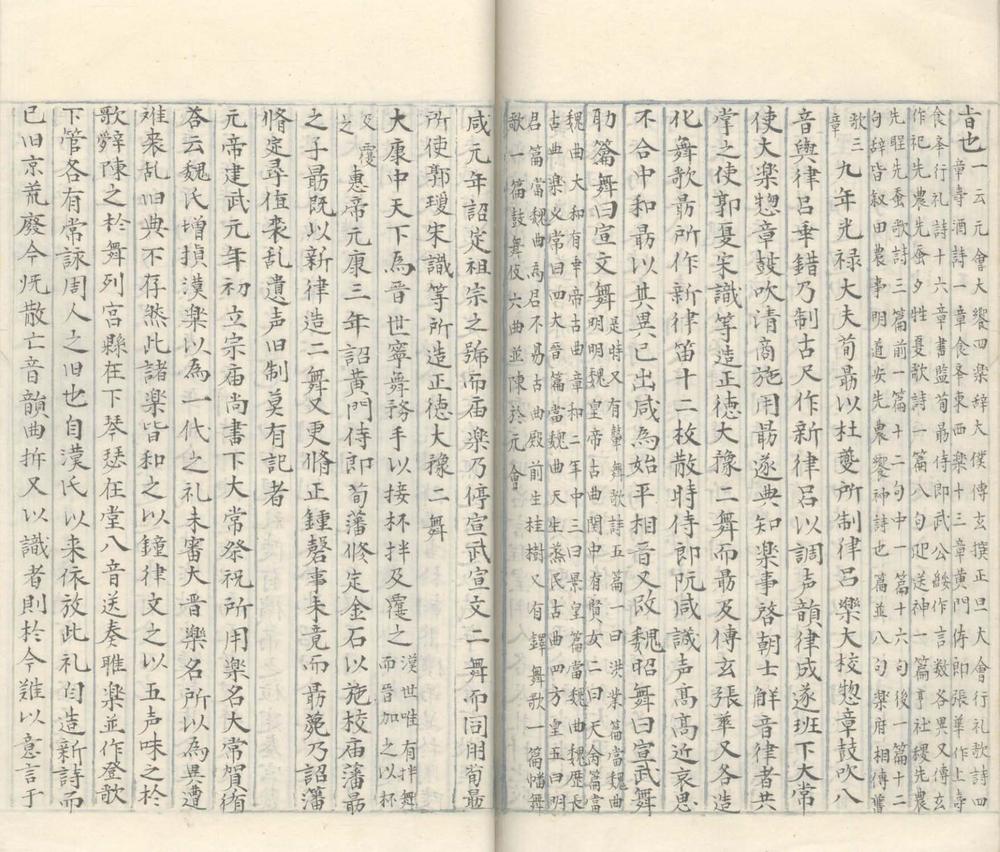 旹也一云元會大饗四楽辞大僕傅玄撰正旦大會行礼歌詩四
章寺酒詩一章食䒶東西楽十三章黄門侍郎張華作上寺
食䒶行礼詩十六章書監荀勗侍郎武公綏作言数各異又傅玄
作祀先農先蚕夕牲憂歌詩一篇八句迎送神一篇享社稷先農
先聖先蚕歌詩三篇前一篇十二句中一篇十六句後一篇十二
句辞皆叙田農事明道安先農饗神詩也篇並八句楽府相傳舊
歌三
章九年光禄大夫荀勗以杜夔所制律呂楽大校惣章鼓吹八
音與律呂乖錯乃制古尺作新律呂以調声韻律成遂班下大常
使大楽惣章鼓吹清商施用勗遂典知楽事啓朝士解音律者共
掌之使郭夏宋識等造正徳大豫二舞而勗及傅玄張華又各造
化舞歌勗所作新律笛十二枚散時侍郎阮咸識声高高近哀思
不合中和勗以其異己出咸為始平相晋又改魏昭舞曰宣武舞
羽籥舞曰宣文舞是時又有鞞舞歌詩五篇一曰洪業篇當魏曲
明明魏皇帝古曲関中有賢女二曰天命篇當
魏曲大和有聖帝古曲章和二年中三曰景皇篇當魏曲魏歴長
古曲楽久長四曰大晋篇當魏曲天生烝民古曲四方皇五曰明
君篇當魏曲為君不易古曲殿前生桂樹又有鐸舞歌一篇幡舞
歌一篇鼓舞伎六曲並陳於元會
咸元年詔定祖宗之號而庙楽乃停宣武宣文二舞而同用荀勗
所使郭瓊宋識等所造正徳大豫二舞
大康中天下為晋世寧舞務手以接杯拌及覆之漢世唯有拌舞
而晋加之以杯
反覆
之惠帝元康三年詔黄門侍郎荀藩修定金石以施校庙藩勗
之子勗既以新律造二舞又更脩正鍾磬事未竟而勗薨乃詔藩
脩定尋值喪乱遺声旧制莫有記者
元帝建武元年初立宗庙尚書下大常祭祝所用楽名大常賀循
荅云魏氏增損漢楽以為一代之礼未審大晋楽名所以為異遭
难来乱旧典不存然此諸楽皆和之以鐘律文之以五声味之於
歌辞陳之於舞列宮縣在下琴瑟在堂八音送奏雎楽並作登歌
下管各有常詠周人之旧也自漢氏以来依放此礼自造新詩而
已旧京荒廢今既散亡音韻曲折又以識者則於今難以意言于